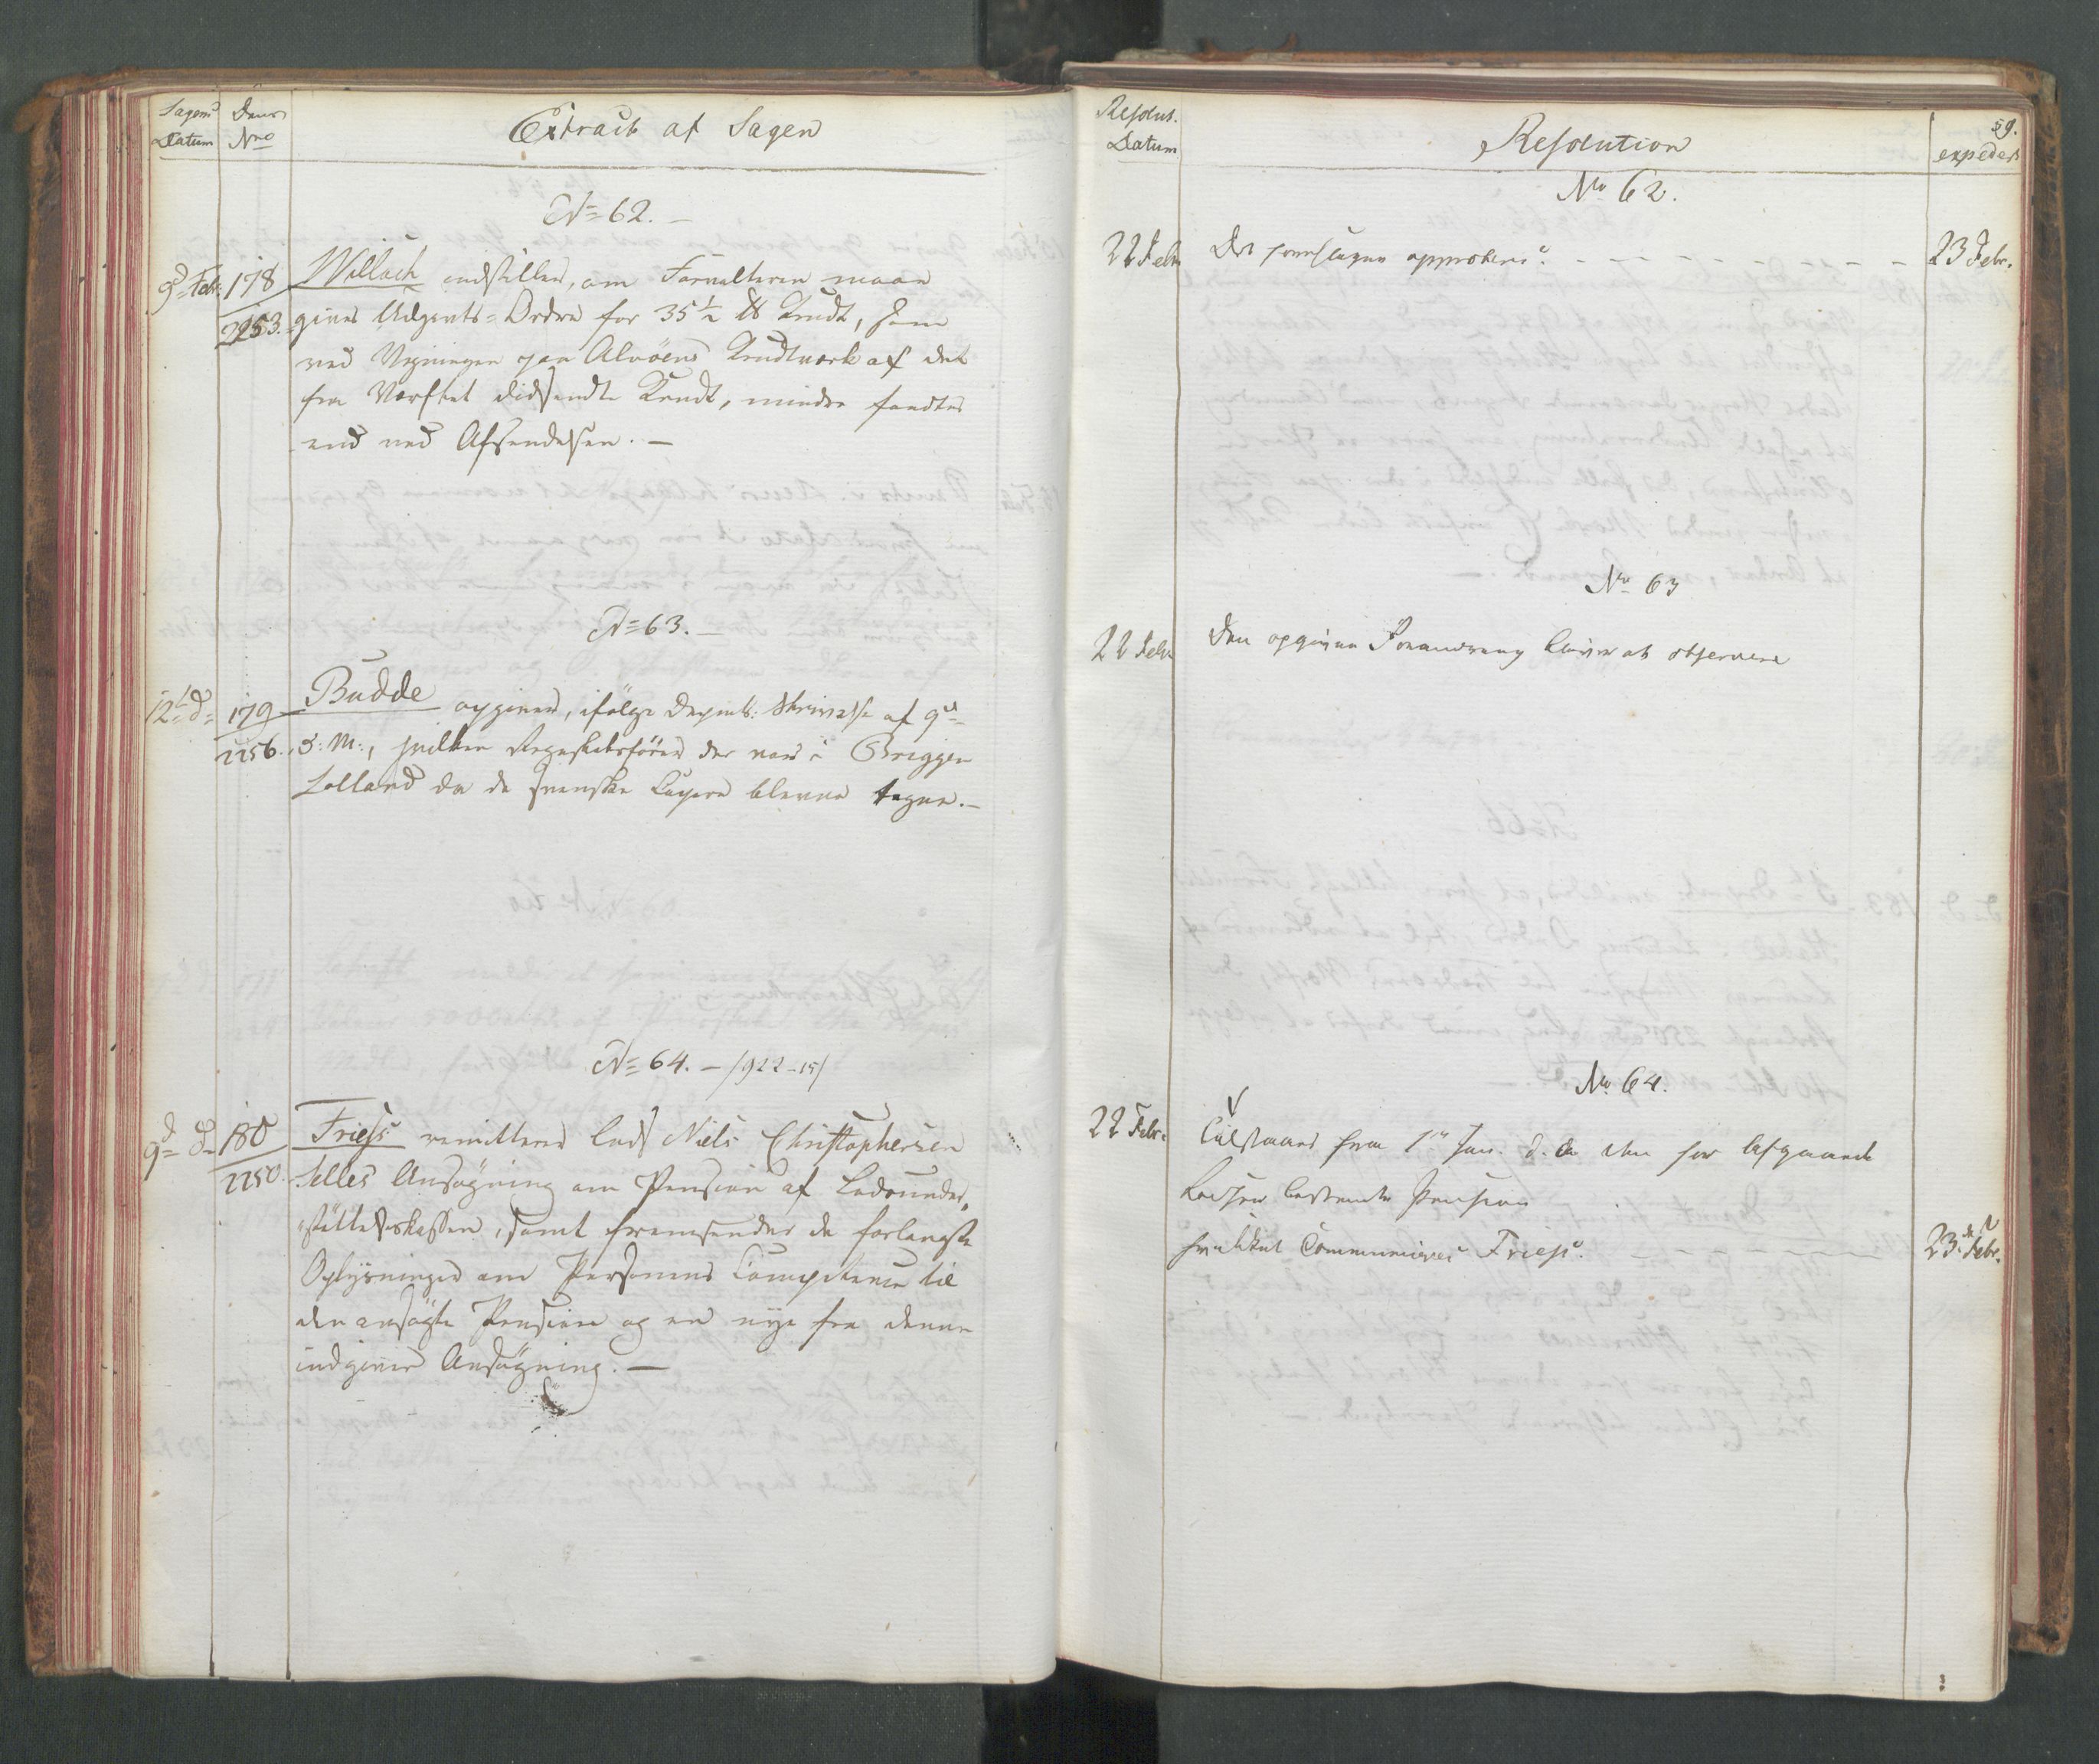 Sagens Datum
Dens Nro
Extract af Sagen
No 62. —
9d Febr. 178 / 2253. Willoch indstiller, om Forvalteren maae
gives Udgivts-Ordre for 35 ½ ℔ Krudt, som
ved Vejningen paa Alvöens Krudtværk af det
fra Værftet didsendte Krudt, mindre fandtes
end ved Afsendelsen. —
No 63. —
12te d= 179 / 2256. Budde opgiver, ifölge Departs: Skrivelse af 9de
d: M:, hvilken Regnskabsförer der var i Briggen
Lolland da de svenske Capere blevne tagne. —
No 64. — /922-15/
9d d= 180 / 2250. Friess remitterer Lods Niels Christophersen
Selles Ansögning om Pension af Lodsunder-
"stöttelseskassen, samt fremsender de forlangte
Oplysninger om Personens Competence til
den ansögte Pension og en nye fra denne
indgiven Ansögning. —
59.
Resolut. Datum
Resolution
expedert
No 62.
22 Febr. Det foreslagne approberes. — — — 23 Febr.
No 63
22 Febr. Den opgivne Formening bliver at observere
No 64.
22 Febr. Tilstaaes fra 1ste Jan. d. A. den for afgaaede
Lodser bestemte Pension
hvilket Communiceres Friess. — — — 23de Febr.